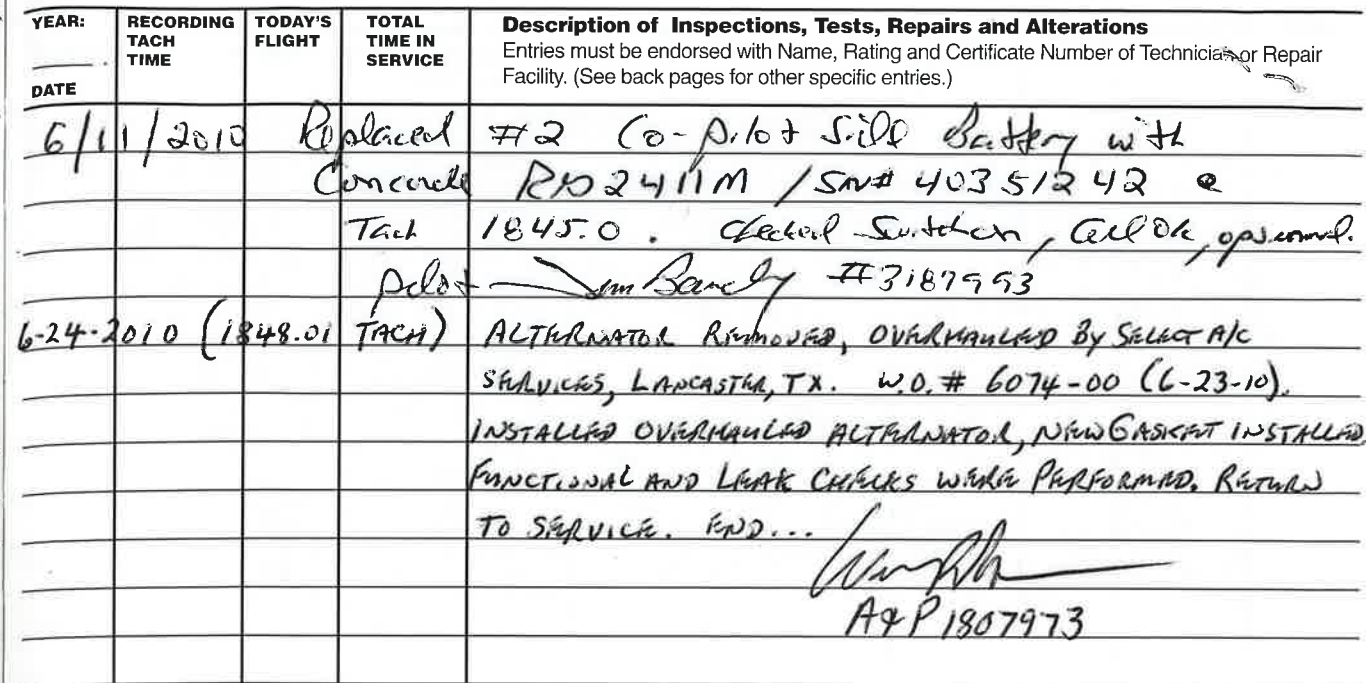 YEAR:
DATE
RECORDING TACH TIME
TODAY'S FLIGHT
TOTAL TIME IN SERVICE
Description of Inspections, Tests, Repairs and Alterations
Entries must be endorsed with Name, Rating and Certificate Number of Technician or Repair
Facility. (See back pages for other specific entries.)
6/11/2010 Replaced #2 Co-pilot Side Battery with
Concorde RG2411M / SN# 40351242 @
Tach 1845.0. Checked Switches, all Ok, ops normal.
pilot — Bandy #3187993
6-24-2010 (1848.01 TACH) ALTERNATOR REMOVED, OVERHAULED BY SELECT A/C
SERVICES, LANCASTER, TX. W.O.# 6074-00 (6-23-10).
INSTALLED OVERHAULED ALTERNATOR, NEW GASKET INSTALLED
FUNCTIONAL AND LEAK CHECKS WERE PERFORMED. RETURN
TO SERVICE. END...
A&P 1807973